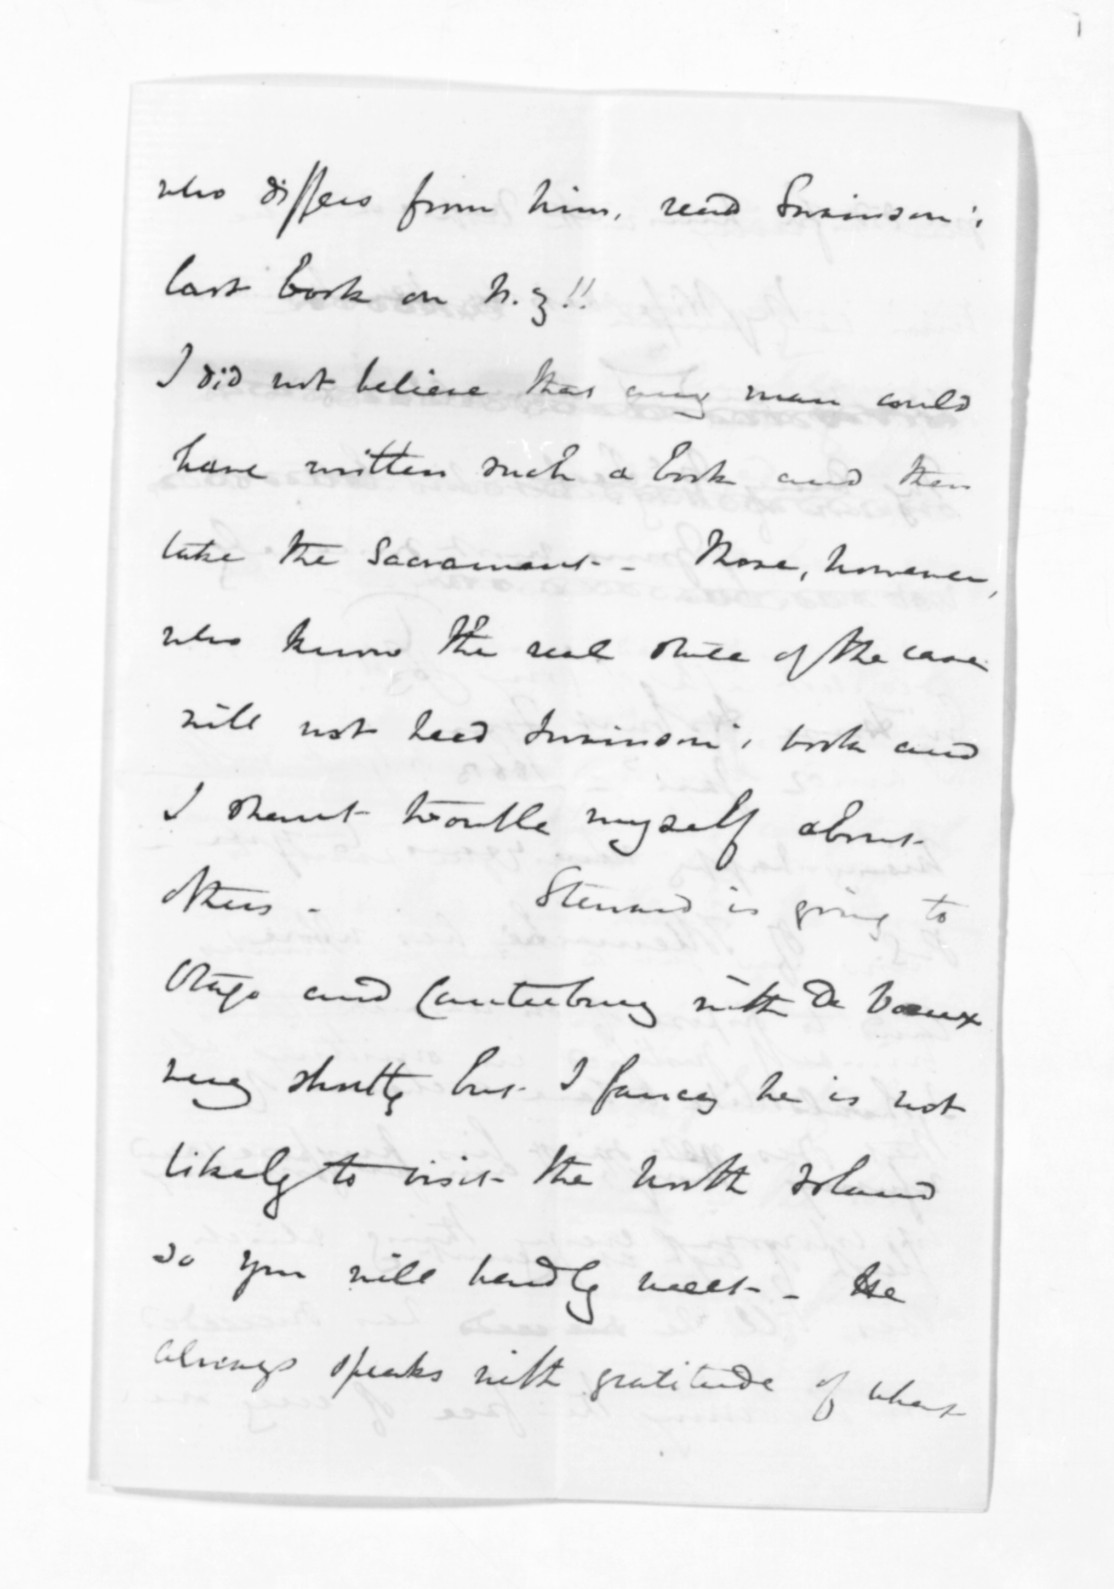 who differs from him, read Swainson's
last book on N.Z!!
I did not believe that any man could
have written such a book and then
take the Sacrament - Those, however,
who know the real state of the case
will not heed Swainson's book and
I shant trouble myself about
others - Steward is going to
Otago and Canterbury with De Veaux
very shortly but I fancy he is not
likely to visit the North Island
so you will hardly meet - He
always speaks with gratitude of what